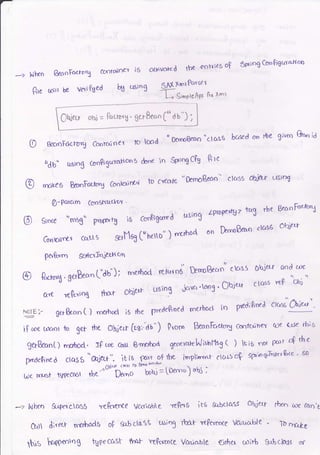 → When BeanFactory container is activated the entries of Spring Configuration
file will be verified by using SAX Xml Parsers
↳ Simple Api for Xml
Object obj = factory.getBean("db");
① BeanFactory Container to load "DemoBean" class based on the given Bean id
"db" using configurations done in SpringCfg file
② makes BeanFactory Container to create "DemoBean" class object using
0-param constructor.
③ Since "msg" property is configured using <property> tag the BeanFactory
Container calls setMsg("hello") method on DemoBean class Object
perform setter Injection
④ factory.getBean("db"); method returns DemoBean class object and we
are refering that object using java.lang.Object class ref "obj"
NOTE:- getBean() method is the predefined method in predefined class "Object".
if we want to get the Object (eg: db) from BeanFactory container we use this
getBean() method. If we call B-method generateWishMsg() it is not part of the
predefined class "Object", it is part of the implement class of Spring Interface. so
we must typecast the Demo bobj = (Demo) obj;
→ When Superclass reference variable refers its subclass Object then we can't
call direct methods of subclass using that reference variable. To make
this happening typecast that reference variable either with subclass or